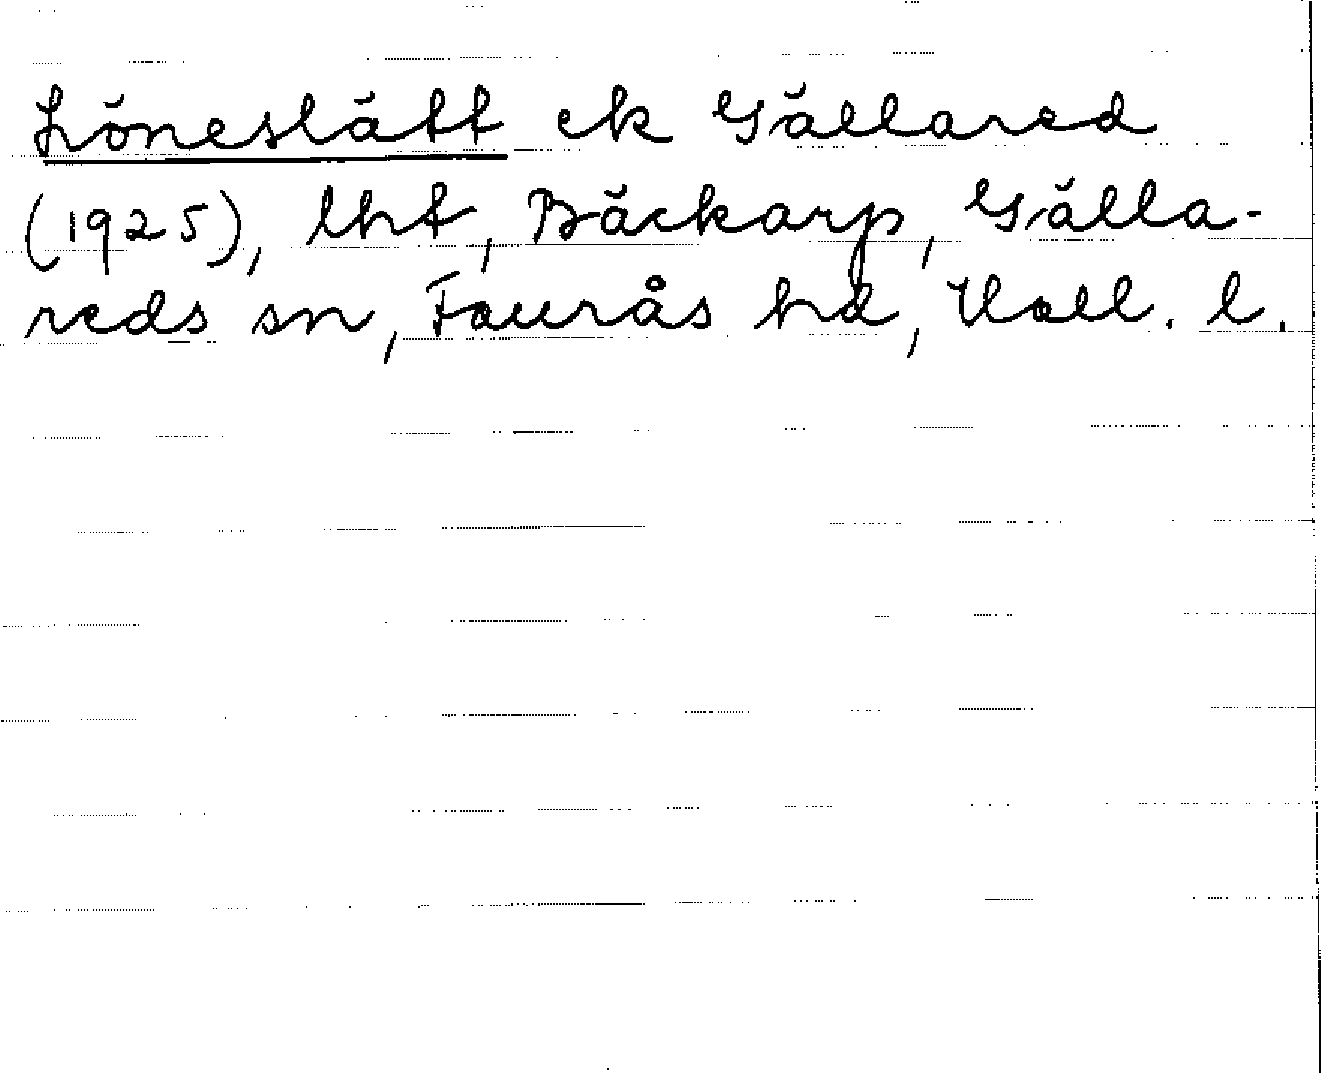 Löneslätt ek Gällared
(1925), lht, Bäckarp, Gälla-
reds sn, Faurås hd, Hall. l.